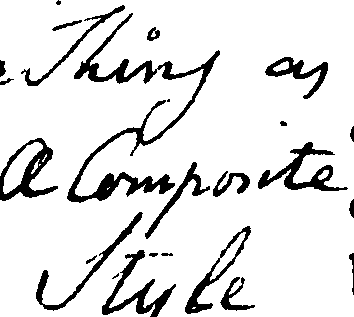 Thing as
a Composite
Style